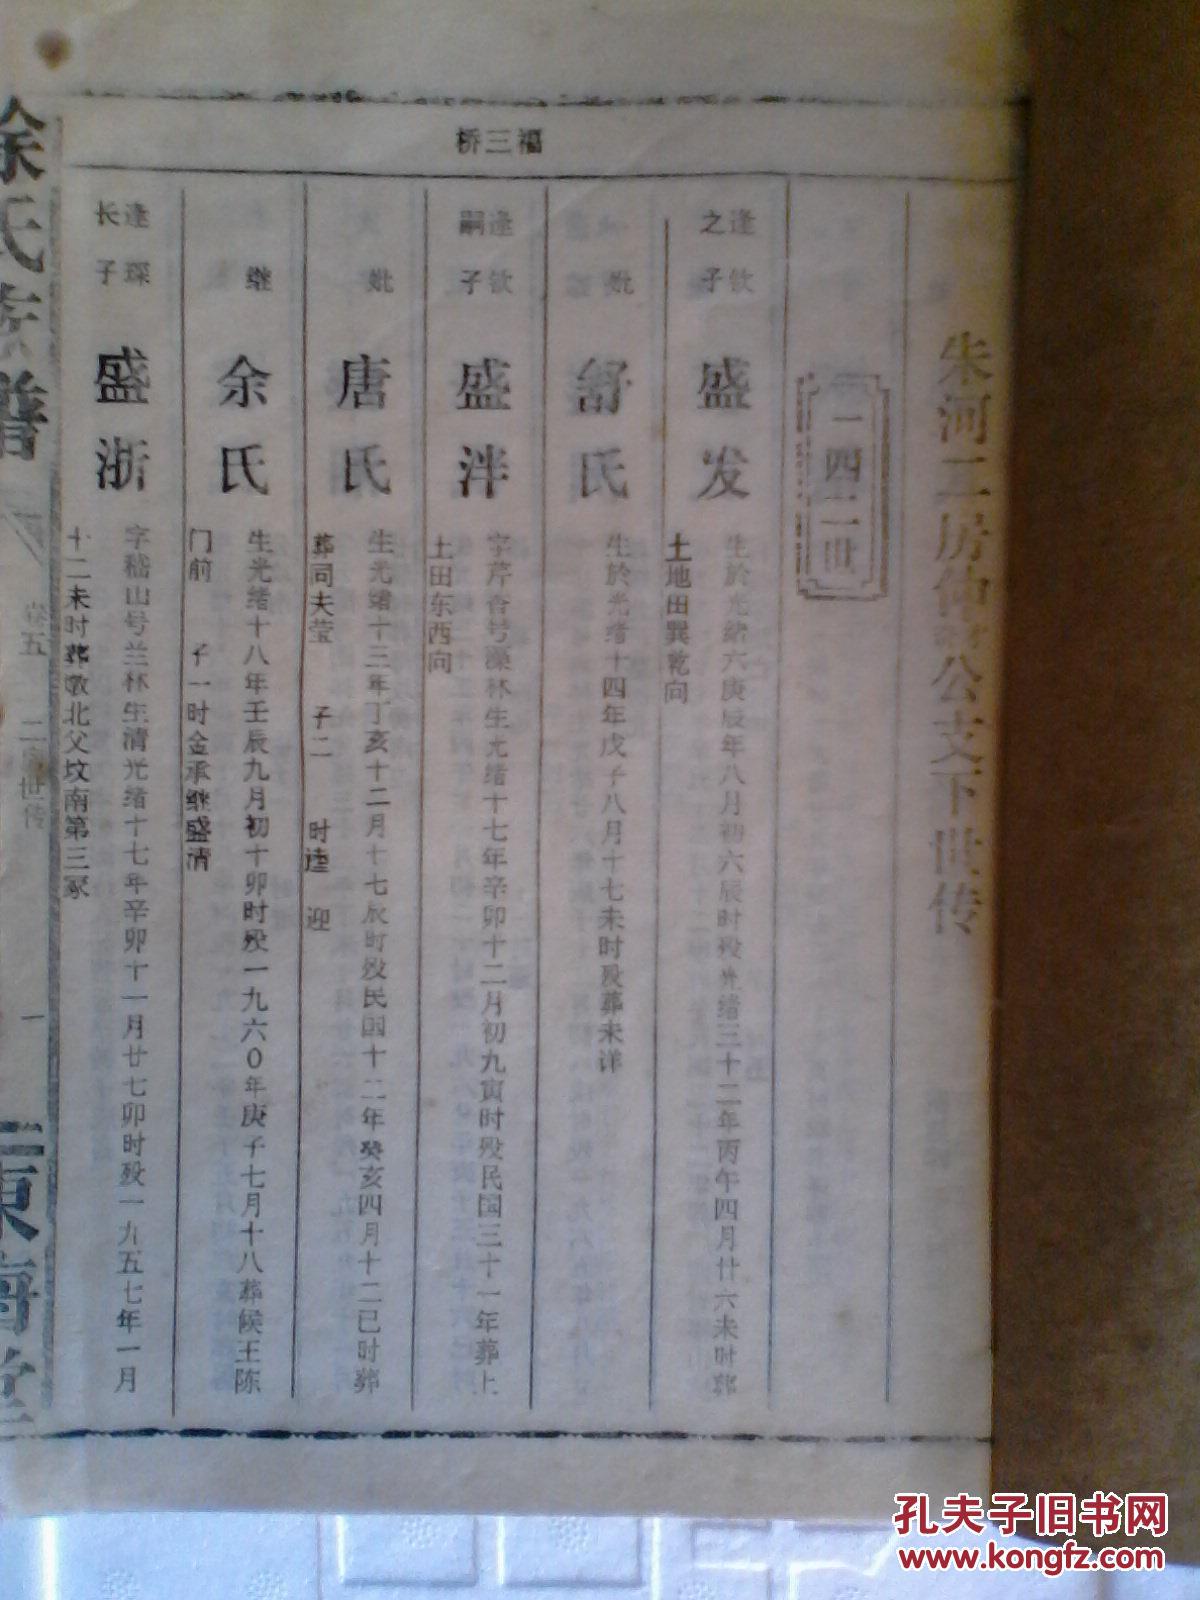 福三桥
朱河二房仲公支下世传
一四二世
逢钦之子
盛发
生於光绪六庚辰年八月初六辰时殁光绪三十二年丙午四月廿六未时葬
土地田巽乾向
妣
舒氏
生於光绪十四年戊子八月十七未时殁葬未详
逢钦嗣子
盛泮
字芹香号藻林生光绪十七年辛卯十二月初九寅时殁民国三十一年葬上
土田东西向
妣
唐氏
生光绪十三年丁亥十二月十七辰时殁民国十二年癸亥四月十二巳时葬
葬同夫莹 子二 时逵 迎
继
余氏
生光绪十八年壬辰九月初十卯时殁一九六0年庚子七月十八葬候王陈
门前 子一时金承继盛清
逢琛长子
盛浙
字嵇山号兰林生清光绪十七年辛卯十一月廿七卯时殁一九五七年一月
十二未时葬墩北父坟南第三冢
徐氏宗谱
卷五
二房世传
一
东海堂
孔夫子旧书网
www.kongfz.com